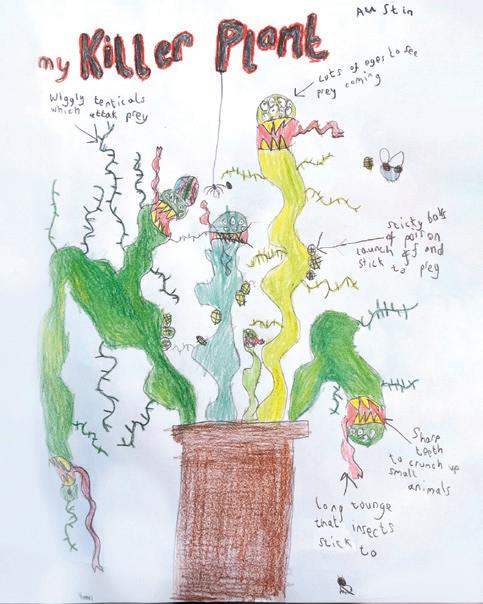 Austin
my Killer Plant
Lots of eyes to see
prey coming
Wiggly tenticals
which attak prey
sticky balls
of poison
launch off and
stick to prey
Sharp
teeth
to crunch up
small
animals
long tounge
that insects
stick to